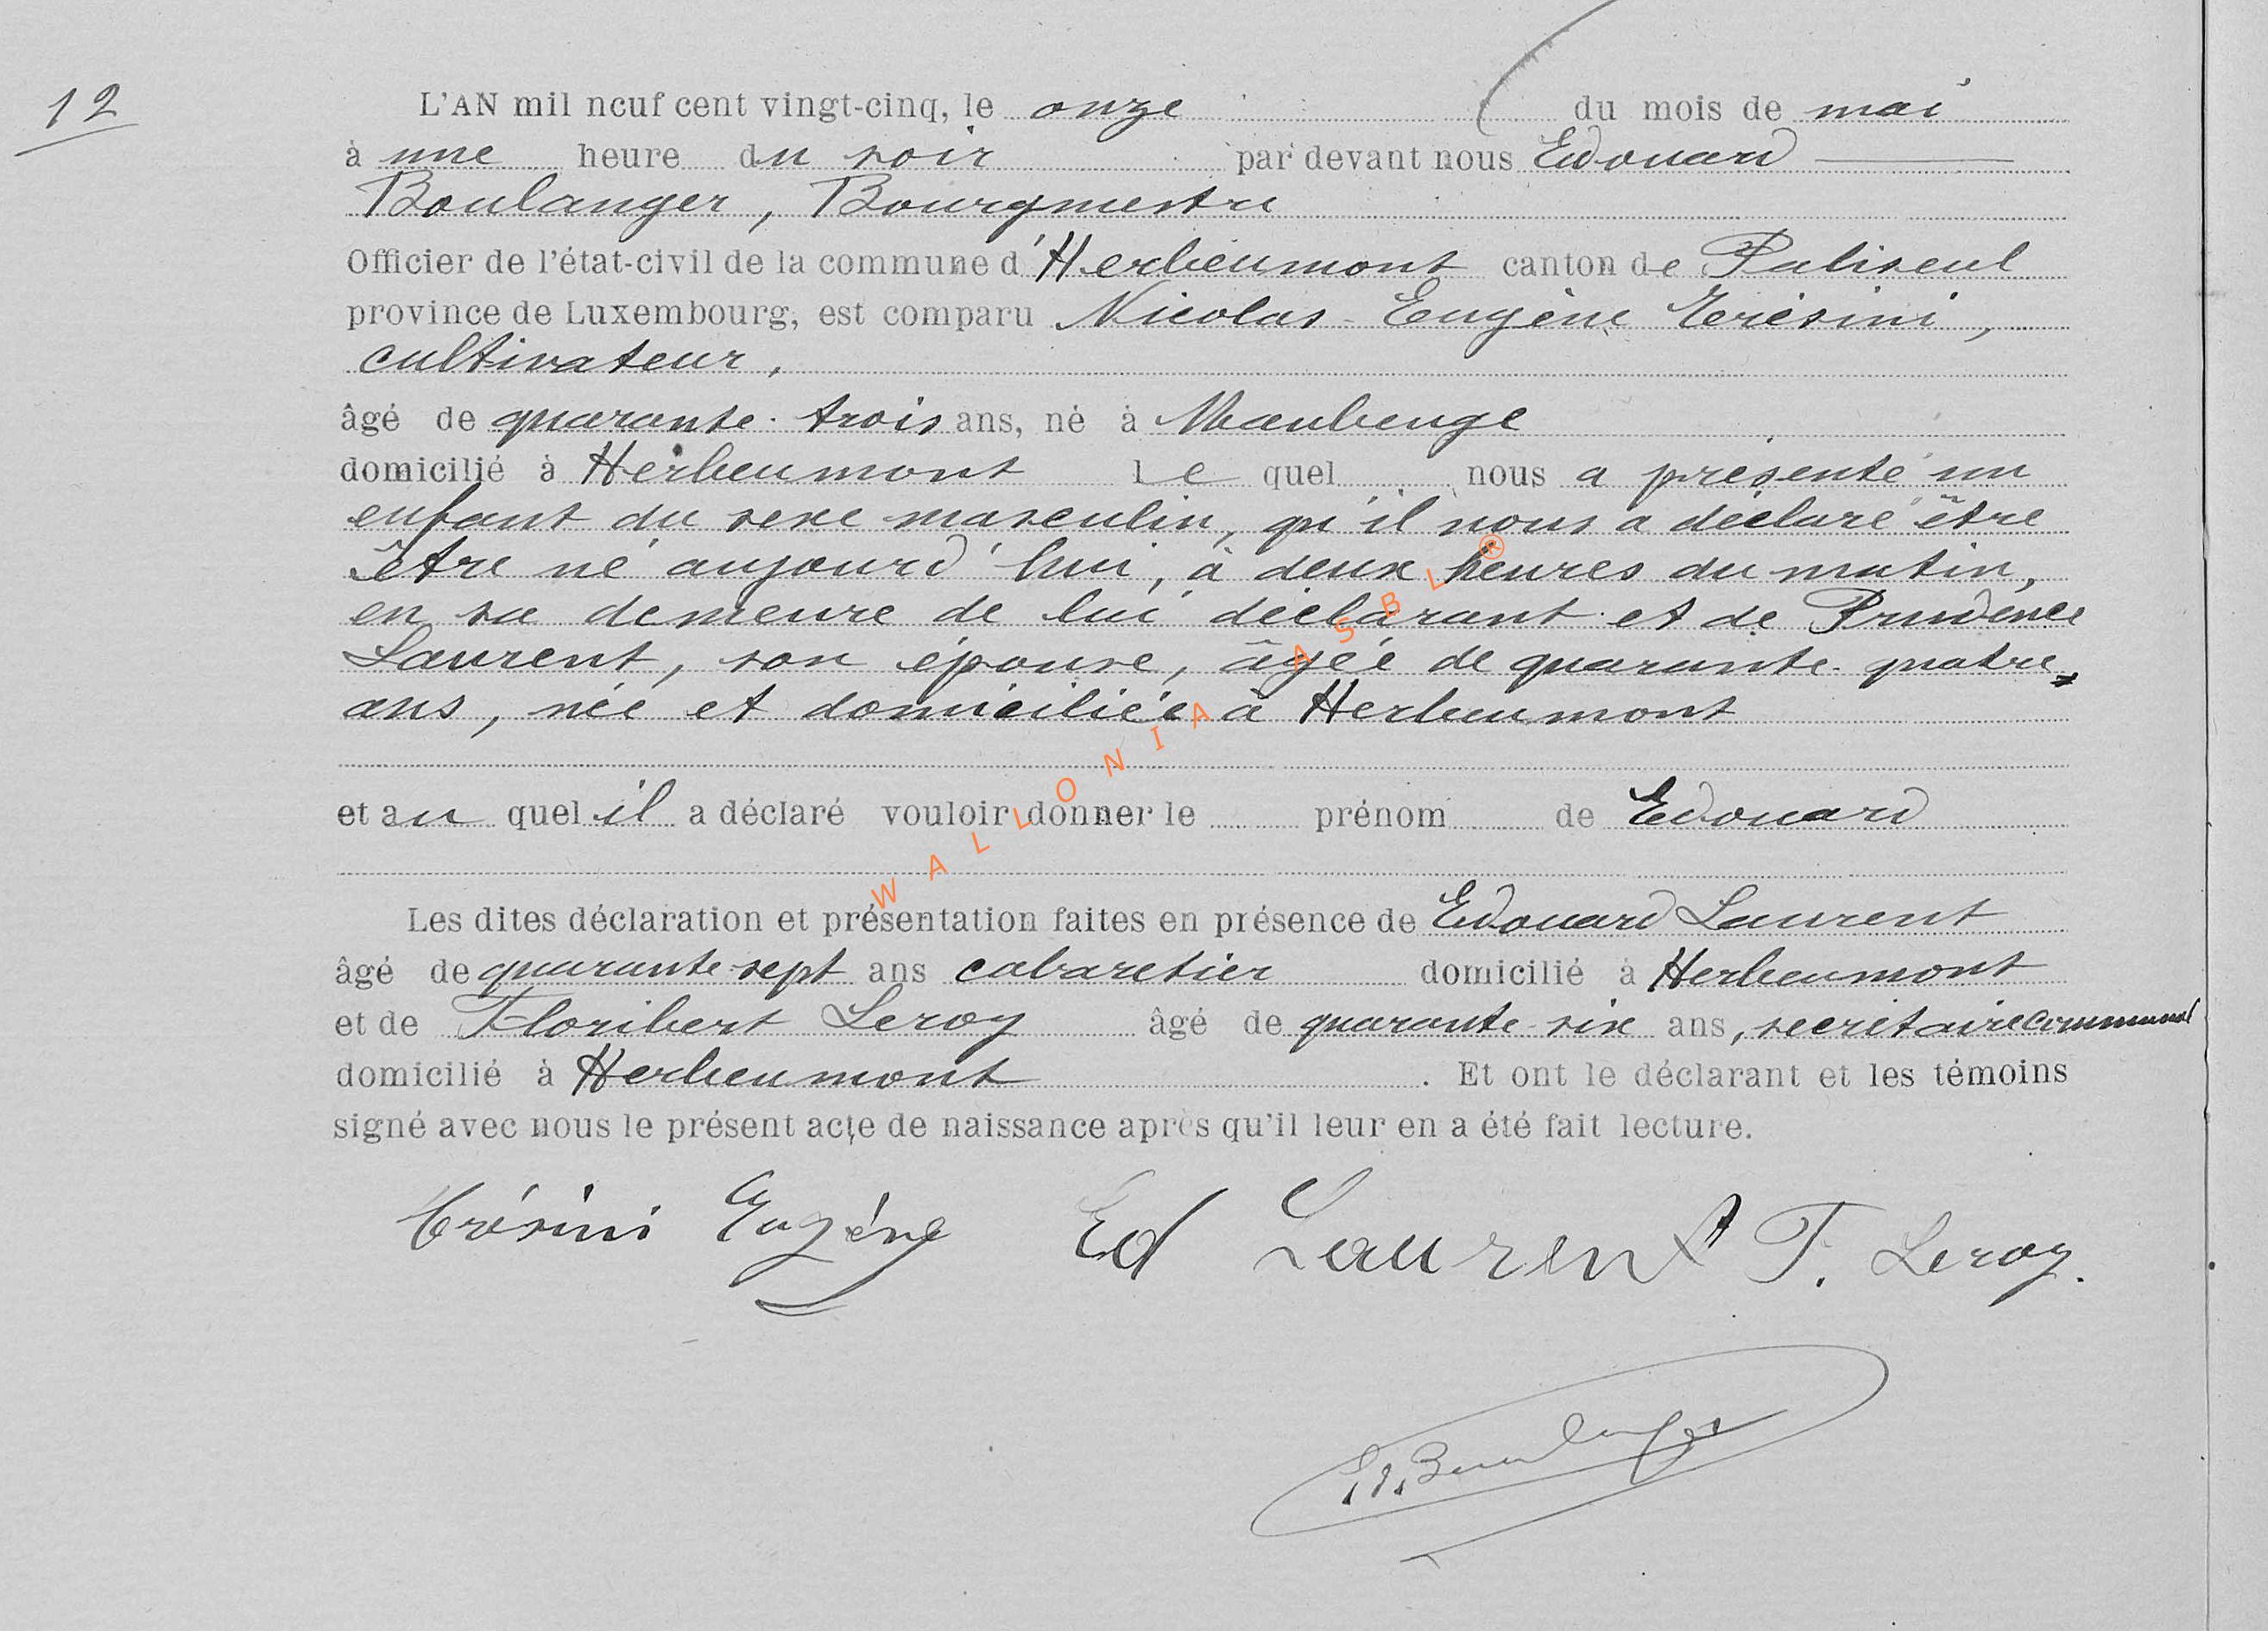 12
L'AN mil neuf cent vingt-cinq, le onze du mois de mai
à une heure du soir par devant nous Edouard
Boulanger, Bourgmestre
Officier de l'état-civil de la commune d'Herbeumont canton de Paliseul
province de Luxembourg, est comparu Nicolas-Eugène Trésini,
cultivateur,
âgé de quarante-trois ans, né à Maubeuge
domicilié à Herbeumont lequel nous a présenté un
enfant du sexe masculin, qu'il nous a déclaré être
être né aujourd'hui, à deux heures du matin,
en sa demeure de lui déclarant et de Prudence
Laurent, son épouse, âgée de quarante-quatre
ans, née et domiciliée à Herbeumont
et au quel il a déclaré vouloir donner le prénom de Edouard
Les dites déclaration et présentation faites en présence de Edouard Laurent
âgé de quarante-sept ans cabaretier domicilié à Herbeumont
et de Floribert Leroy âgé de quarante-six ans, secrétaire communal
domicilié à Herbeumont. Et ont le déclarant et les témoins
signé avec nous le présent acte de naissance après qu'il leur en a été fait lecture.
Trésini Eugène Ed Laurent F. Leroy.
Ed. Boulanger
WALLONIA ASBL ®